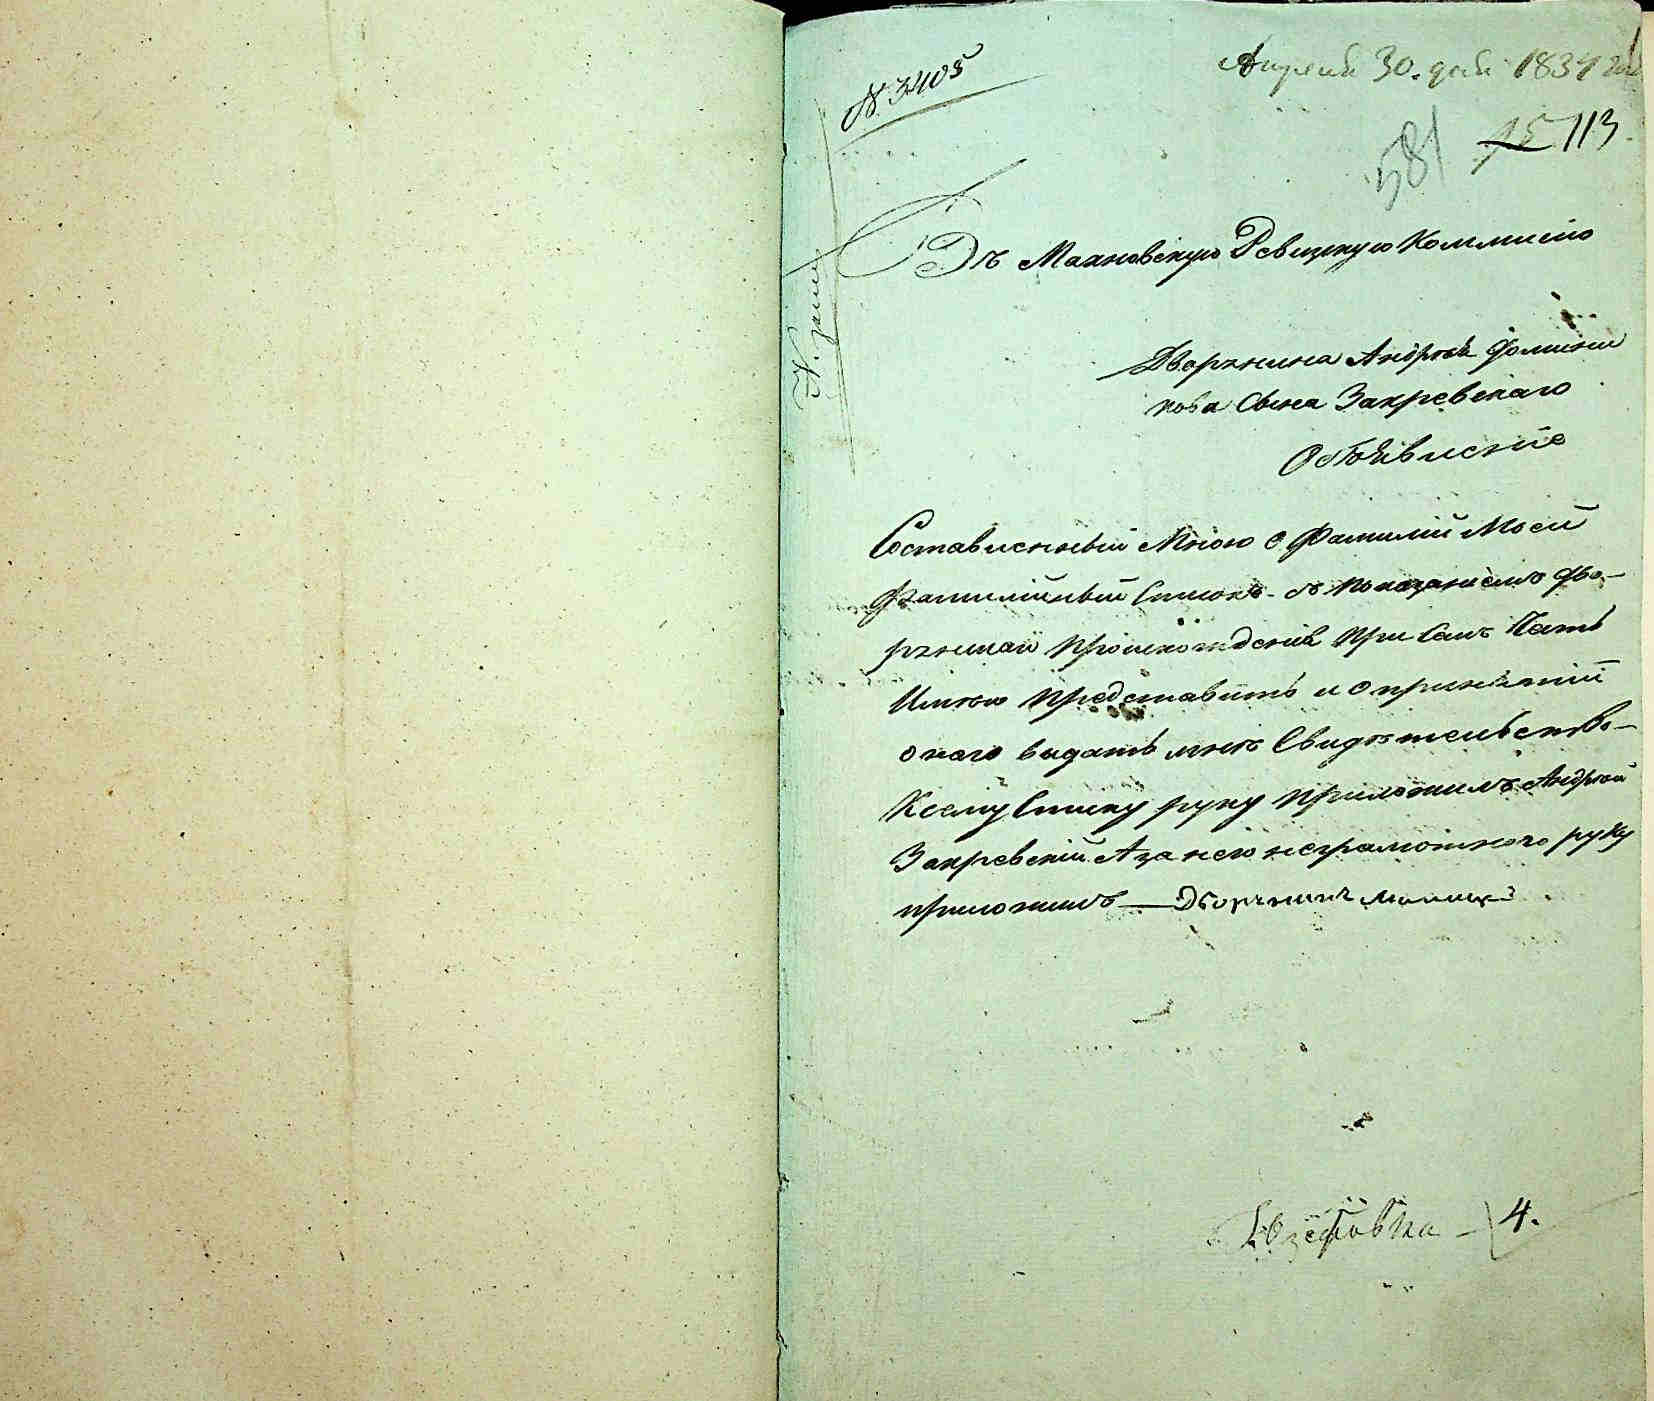 № 3405
Апреля 30. дня 1834 года
581
113
Въ Махновскую Ревизкую Коммисію
Дворянина Андрея Фоминни
кова Сына Закревскаго
Объявленіе
Составленный Мною о Фамиліи Моей
Фамилійный Списокъ съ показаніемъ дво-
рянскаго происхожденія при Семъ
Имѣю представить и о принятіи
онаго выдать мнѣ Свидѣтельство-
К сему Списку руку приложилъ Андрей
Закревскій А за него неграмотного руку
приложилъ — Дворянинъ
Юзефовка — 4.